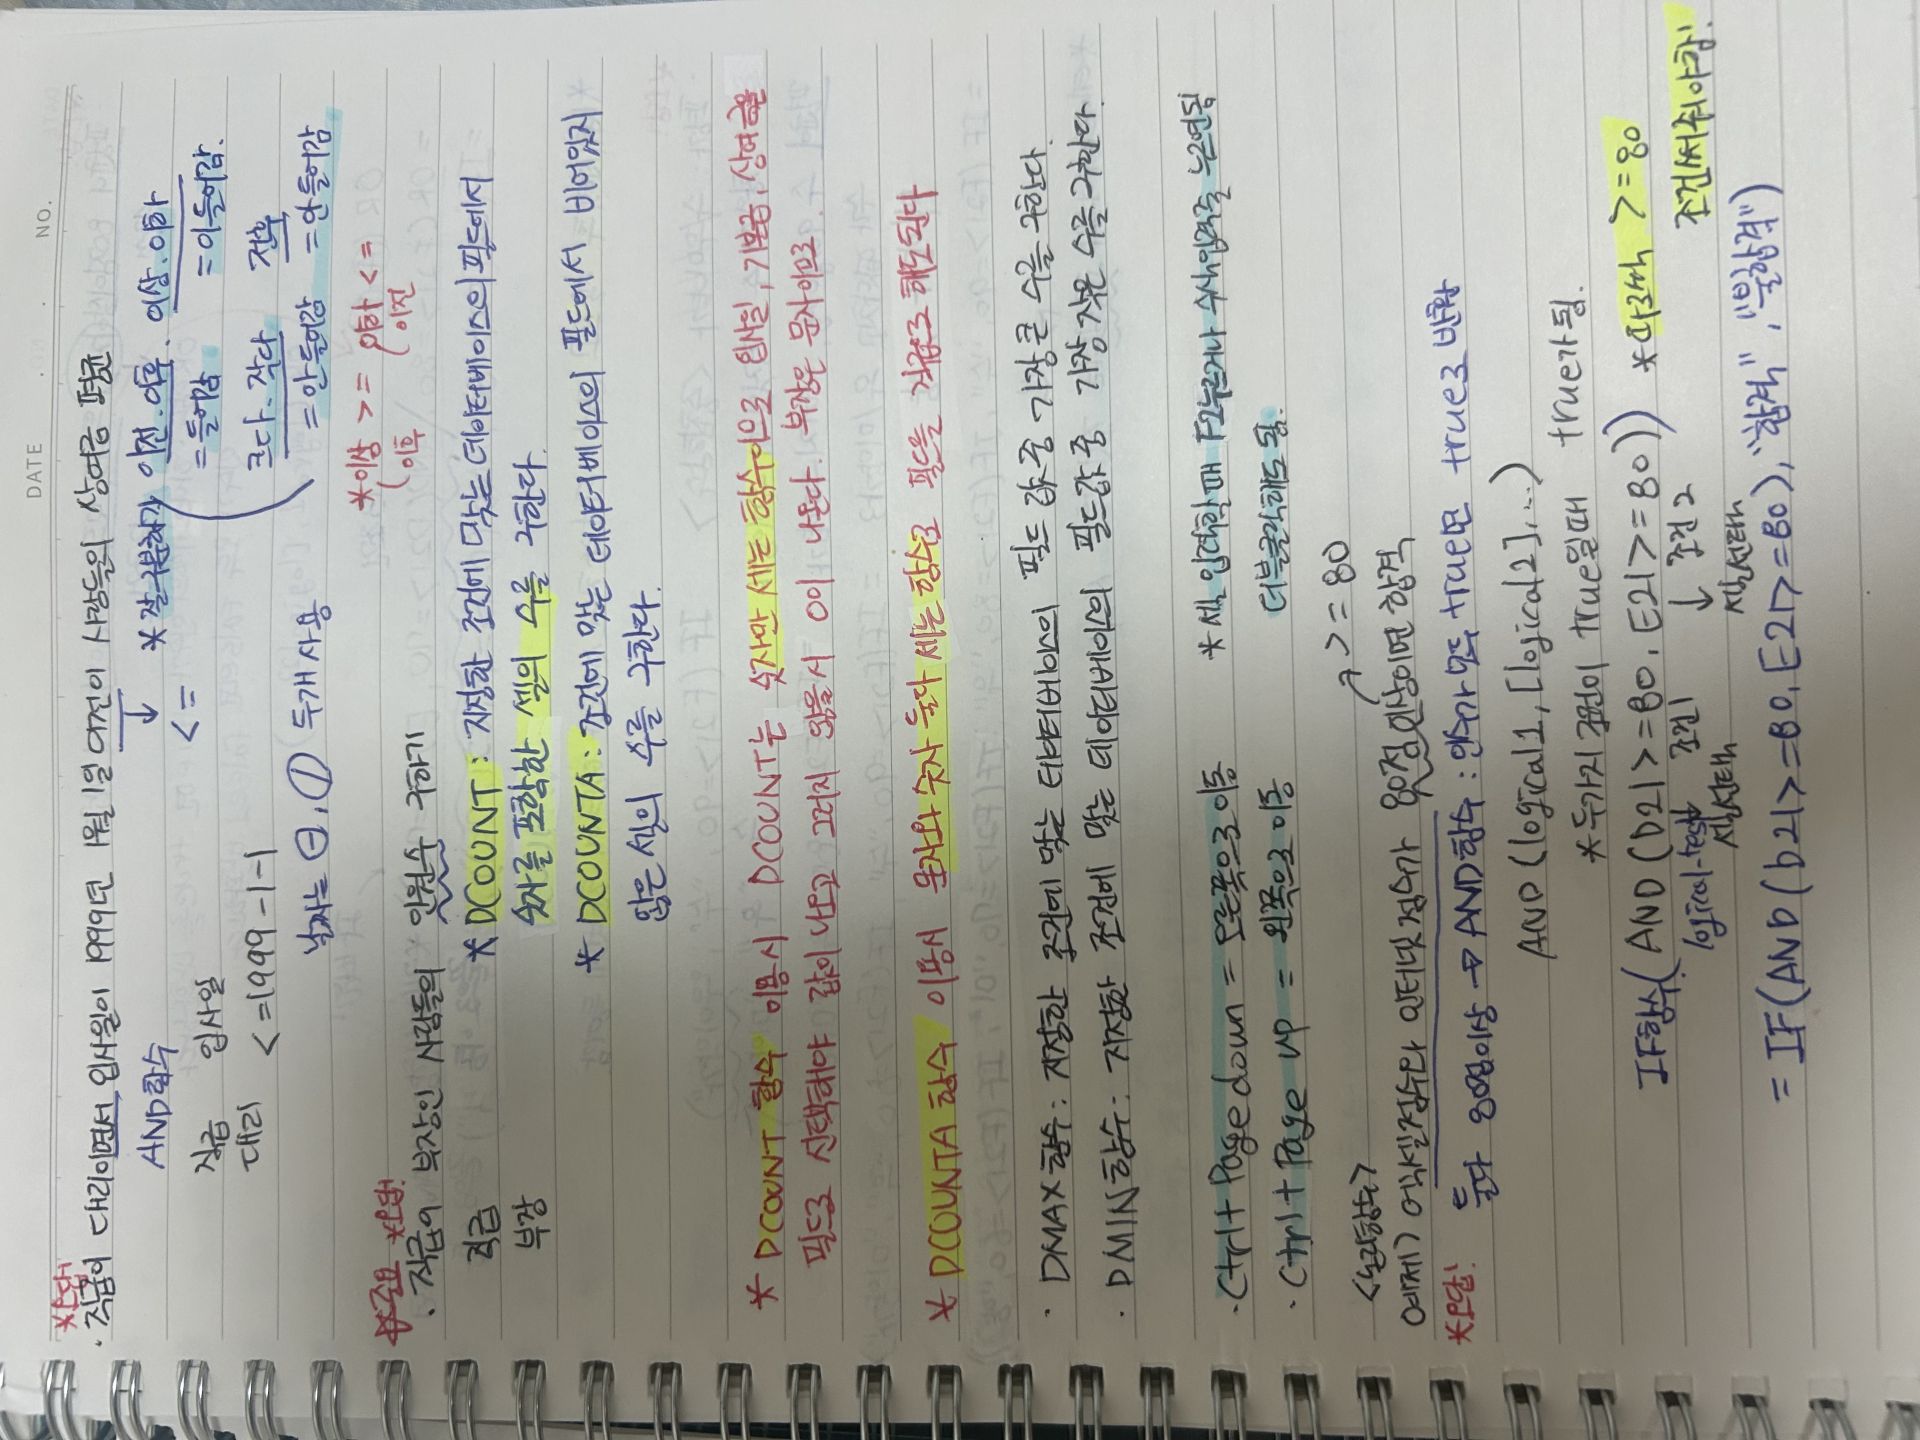 DATE . . NO.
*오답!
· 직급이 대리이면서 입사일이 1999년 1월 1일 이전인 사람들의 상여금 평균
AND함수 ↓ *잘구분하기 이전.이후. 이상.이하
<= =들어감 =이들어감.
직급 입사일 크다.작다 전후
대리 <=1999-1-1 =안들어감 =안들어감
날짜는 ⊖, / 두개 사용
*이상 >= 이하 <=
(이후 (이전
*중요 *오답!
· 직급이 부장인 사람들의 인원수 구하기
직급 * DCOUNT: 지정한 조건에 맞는 데이터베이스의 필드에서
부장 숫자를 포함한 셀의 수를 구한다.
* DCOUNTA: 조건에 맞는 데이터베이스의 필드에서 비어있지
않은 셀의 수를 구한다.
* DCOUNT 함수 이용시 DCOUNT는 숫자만 세는 함수이므로 입사일, 기본급, 상여금을
필드로 선택해야 값이 나오고 그러지 않을시 0이 나온다. 부장은 문자이므로
* DCOUNTA 함수 이용시 문자와 숫자 둘다 세는 함수로 필드를 직급으로 해도된다
· DMAX함수: 지정한 조건에 맞는 데이터베이스의 필드 값 중 가장 큰 수를 구한다.
· DMIN함수: 지정한 조건에 맞는 데이터베이스의 필드값 중 가장 작은 수를 구한다.
· Ctrl + Page down = 오른쪽으로 이동 *셀 입력할때 F2누르거나 수식입력줄 누르면됨
· Ctrl + Page up = 왼쪽으로 이동 더블클릭해도 됨.
<논리함수> >=80
예제) 엑셀점수와 인터넷점수가 80점이상이면 합격
*오답! 둘다 80점이상 → AND함수: 인수가 모두 true면 true로 반환
AND (logical1, [logical2], ...)
*두가지 조건이 true일때 true가 됨.
IF함수( AND (D21>=80, E21>=80)) *마다 >=80
logical-test 조건1 ↓ 조건2 조건써줘야함.
셀선택 셀선택
= IF(AND (D21>=80, E21>=80), "합격", "불합격")